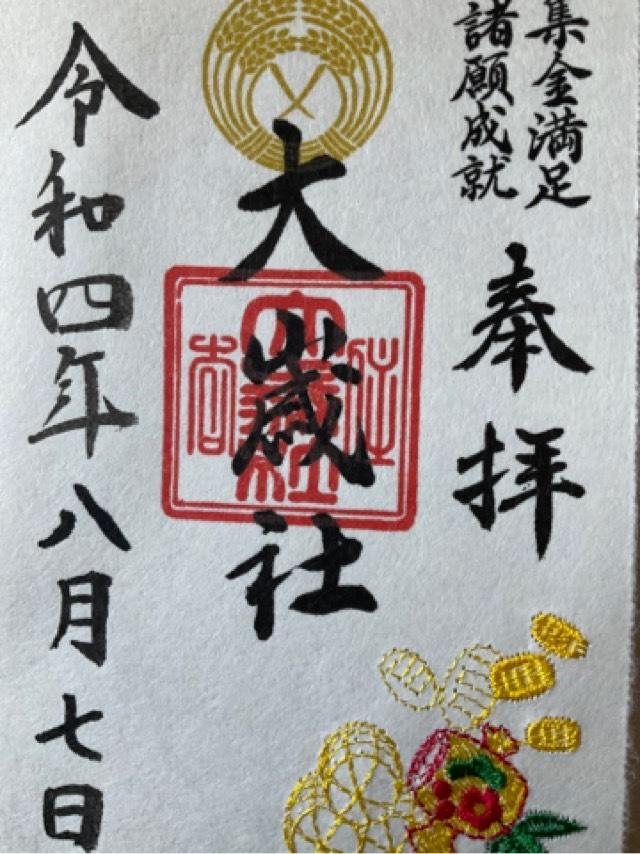 集金満足
諸願成就
奉拝
大歳社
令和四年八月七日